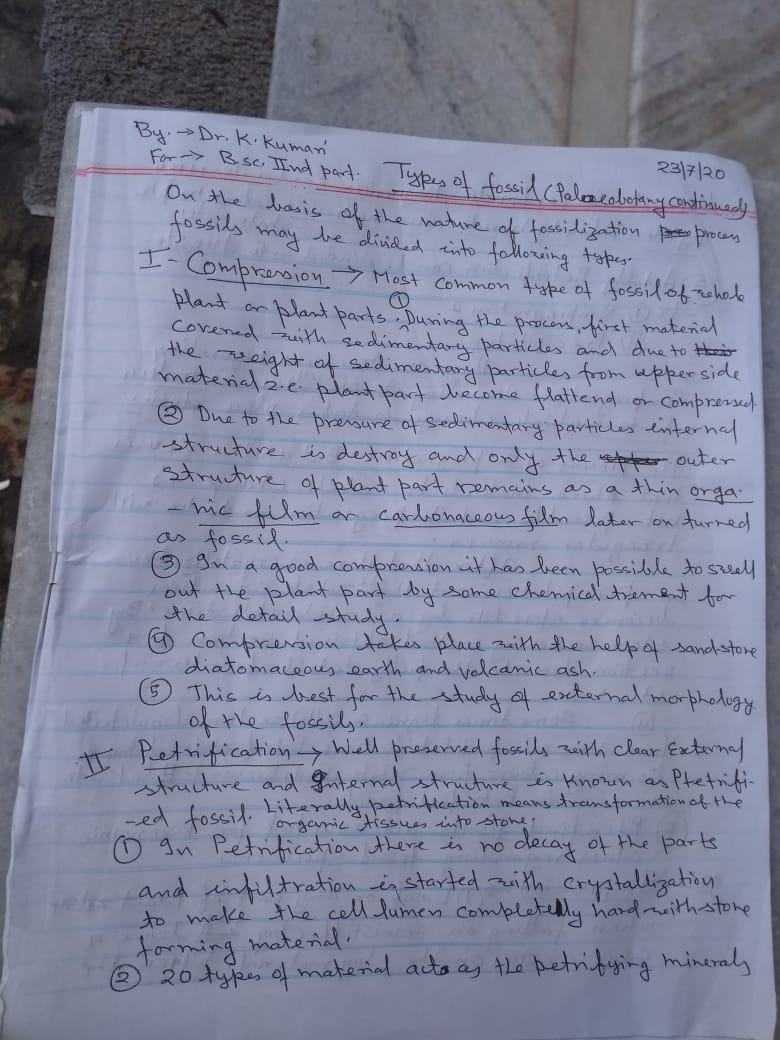 By. → Dr. K. Kumari
For → B.sc. IInd part.
23/7/20
Types of fossil (Palaeobotany continued)
On the basis of the nature of fossilization process
fossils may be divided into following types.
I - Compression → Most common type of fossil of whole
plant or plant parts. ① During the process, first material
covered with sedimentary particles and due to
the weight of sedimentary particles from upper side
material i.e. plant part become flattend or compressed
② Due to the pressure of sedimentary particles internal
structure is destroy and only the outer
structure of plant part remains as a thin orga-
-nic film or carbonaceous film later on turned
as fossil.
③ In a good compression it has been possible to swell
out the plant part by some chemical trement for
the detail study.
④ Compression takes place with the help of sand-stone
diatomaceous earth and volcanic ash.
⑤ This is best for the study of external morphology
of the fossils.
II Petrification → Well preserved fossils with clear External
structure and Internal structure is known as Ptetrifi-
-ed fossil. Literally petrification means transformation of the
organic tissues into stone.
① In Petrification there is no decay of the parts
and infiltration is started with crystallization
to make the cell lumen completelly hard with stone
forming material.
② 20 types of material acts as the petrifying minerals